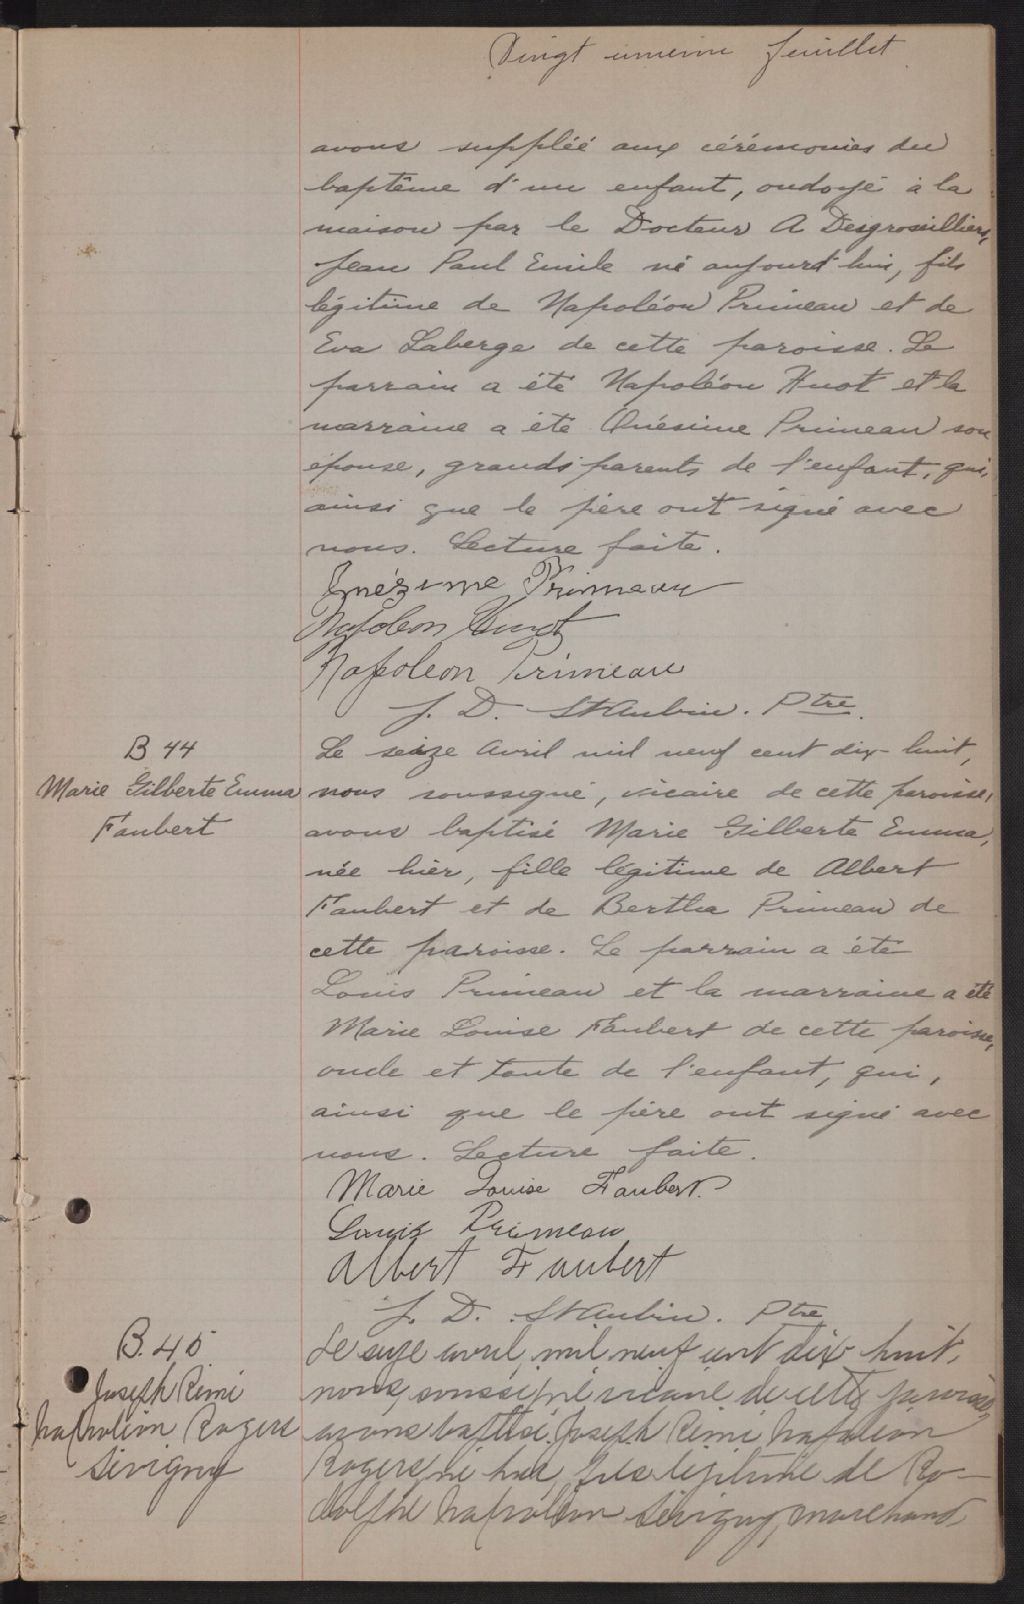 Vingt unieme feuillet
avons suppléé aux cérémonies du
baptême d'un enfant, ondoyé à la
maison par le Docteur A Desgroseilliers,
Jean Paul Emile né aujourd'hui, fils
légitime de Napoléon Primeau et de
Eva Laberge de cette paroisse. Le
parrain a été Napoléon Huot et la
marraine a été Onésime Primeau son
épouse, grands parents de l'enfant, qui,
ainsi que le père ont signé avec
nous. Lecture faite.
Onézime Primeau
Napoleon Huot
Napoleon Primeau
J. D. St Aubin. Ptre.
B 44
Marie Gilberte Emma
Faubert
Le seize Avril mil neuf cent dix-huit,
nous soussigné, vicaire de cette paroisse,
avons baptisé Marie Gilberte Emma,
née hier, fille légitime de Albert
Faubert et de Bertha Primeau de
cette paroisse. Le parrain a été
Louis Primeau et la marraine a été
Marie Louise Faubert de cette paroisse,
oncle et tante de l'enfant, qui,
ainsi que le père ont signé avec
nous. Lecture faite.
Marie Louise Faubert.
Louis Primeau
Albert Faubert
J. D. St Aubin. Ptre
B. 45
Joseph Rémi
Napoléon Rogers
Sévigny
Le seize avril mil neuf cent dix huit,
nous soussigné vicaire de cette paroisse,
avons baptisé Joseph Rémi Napoléon
Rogers, né hier, fils légitime de Ro-
dolphe Napoléon Sévigny, marchand